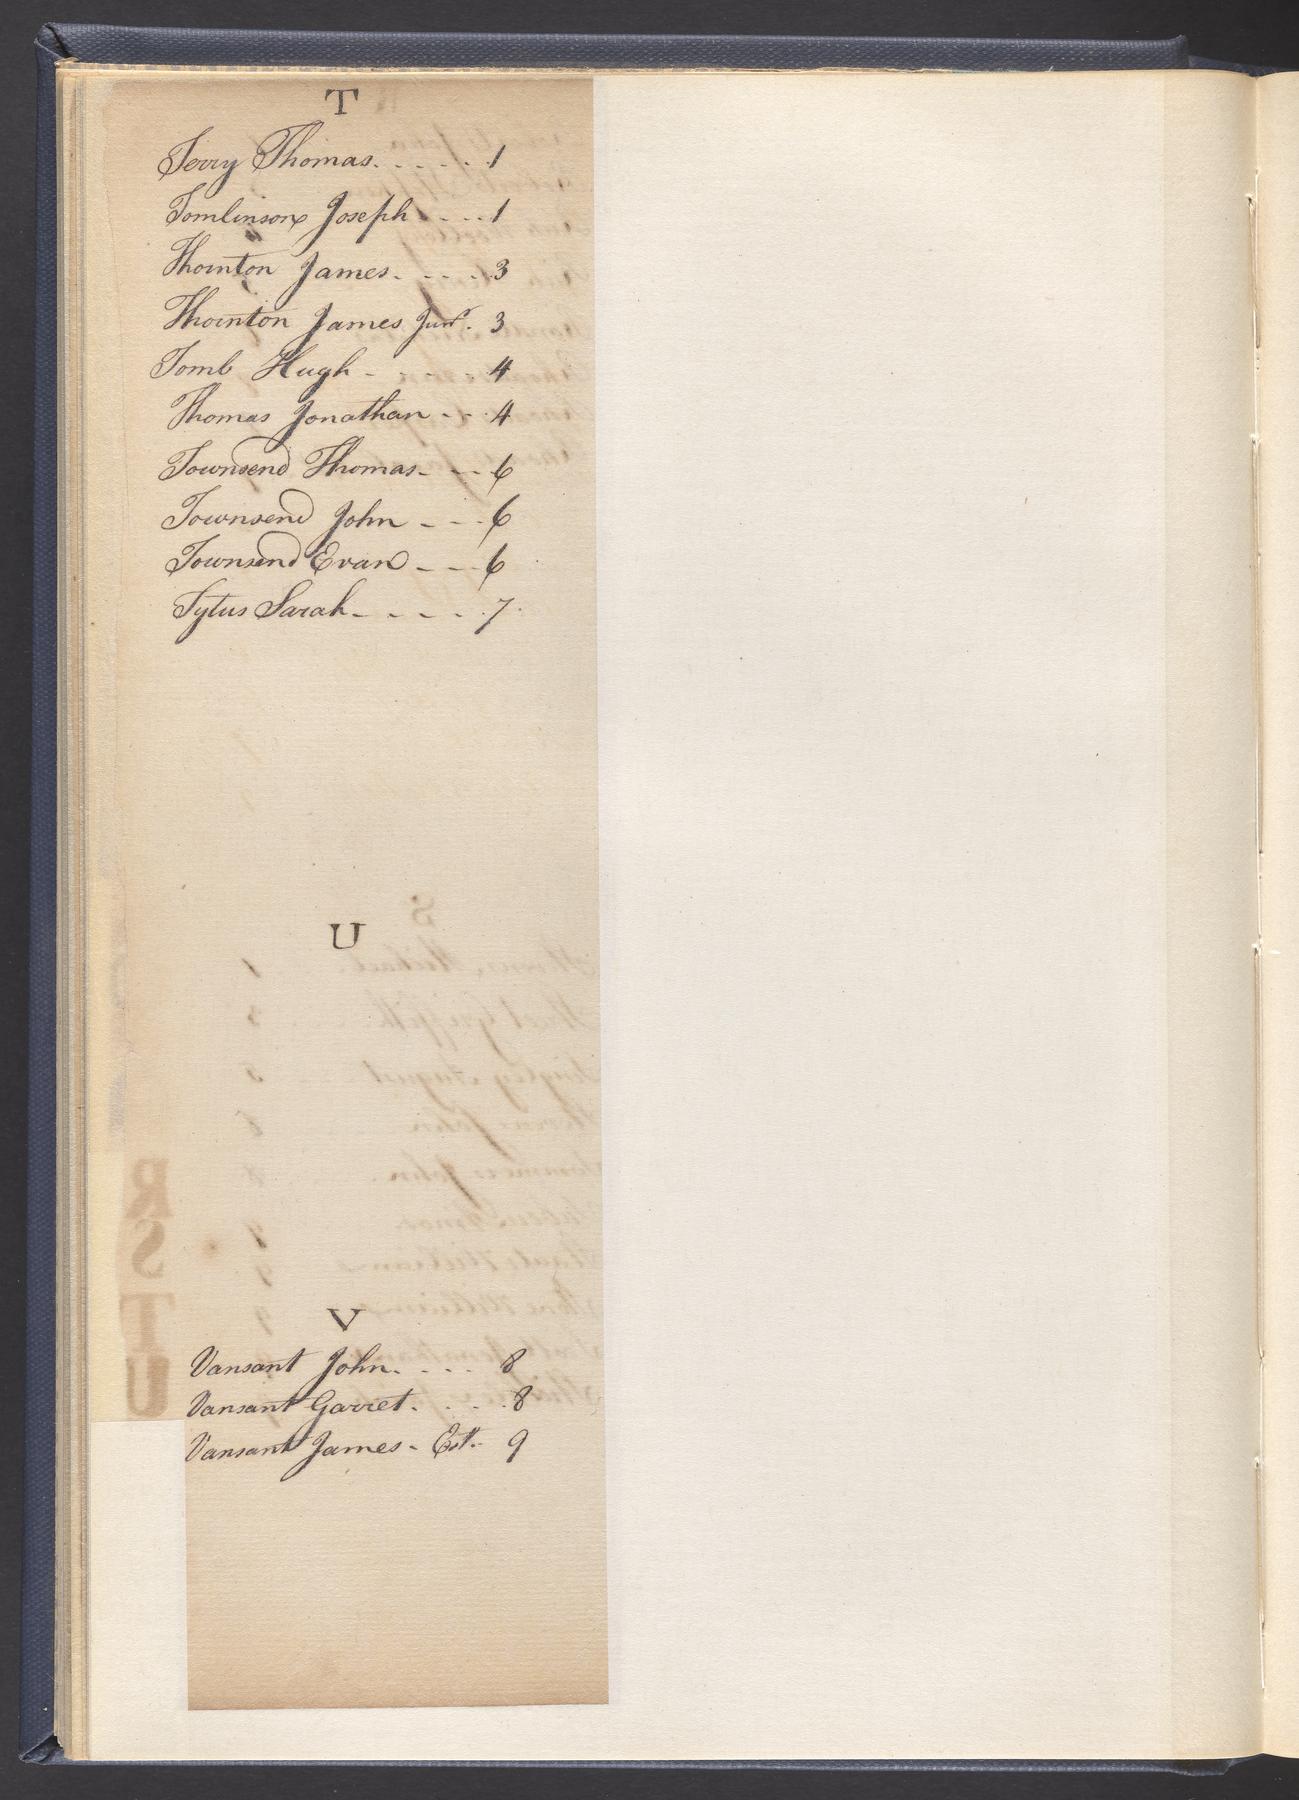 T
Terry Thomas. - - - - . 1
Tomlinson Joseph - - - 1
Thornton James. - - - . 3
Thornton James Junr. 3
Tomb Hugh - - - - 4
Thomas Jonathan - - . 4
Townsend Thomas - - - 6
Townsend John - - - 6
Townsend Evan - - - 6
Tytus Sarah - - - - . 7.
U
R
S
T
U
V
Vansant John. - - - 8
Vansant Garret. - - . 8
Vansant James - Est. - 9